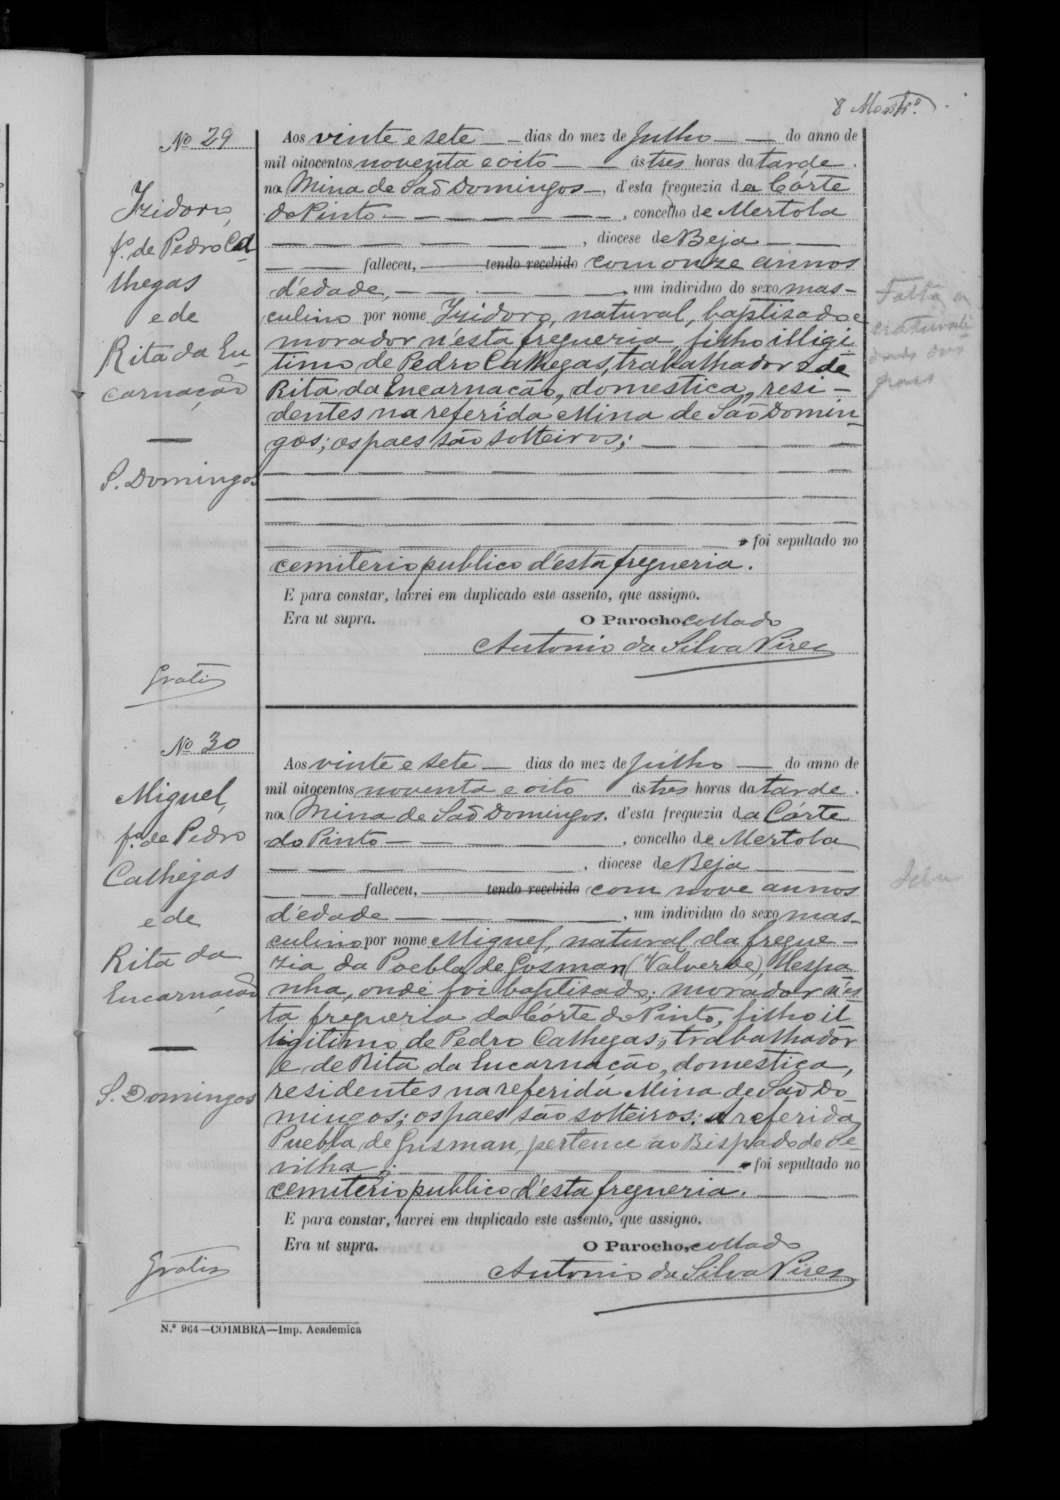 8
Nº 29
Izidoro,
fº. de Pedro Ca
thegas
e de
Rita da En-
carnação
S. Domingos
Gratis
Aos vinte e sete dias do mez de Julho do anno de
mil oitocentos noventa e oito ás tres horas da tarde.
na Mina de São Domingos, d'esta freguezia da Córte
do Pinto, concelho de Mertola
, diocese de Beja
falleceu, tendo recebido com onze annos
d'edade, um individuo do sexo mas-
culino por nome Izidoro, natural, baptisado e
morador n'esta freguezia, filho illigi
timo de Pedro Cathegas, trabalhador e de
Rita da Encarnação, domestica, resi-
dentes na referida Mina de São Domin-
gos; os paes são solteiros;
foi sepultado no
cemiterio publico d'esta freguezia.
E para constar, lavrei em duplicado este assento, que assigno.
Era ut supra. O Parocho collado
Antonio da Silva Pires
Falta a
naturali
dade dos
paes
Nº 30
Miguel,
fº. de Pedro
Cathegas
e de
Rita da
Encarnação
S. Domingos
Gratis
Aos vinte e sete dias do mez de Julho do anno de
mil oitocentos noventa e oito ás tres horas da tarde.
na Mina de São Domingos. d'esta freguezia da Córte
do Pinto, concelho de Mertola
, diocese de Beja
falleceu, tendo recebido com nove annos
d'edade, um individuo do sexo mas-
culino por nome Miguel, natural da fregue-
zia da Poebla de Gosman (Valverde), Hespa
nha, onde foi baptisado; morador n'es
ta freguezia da Córte do Pinto, filho il
ligitimo de Pedro Cathegas, trabalhador
e de Rita da Encarnação, domestica,
residentes na referida Mina de São Do-
mingos; os paes são solteiros; a referida
Puebla de Gusman, pertence ao Bispado de Se-
vilha; foi sepultado no
cemiterio publico d'esta freguezia.
E para constar, lavrei em duplicado este assento, que assigno.
Era ut supra. O Parocho, collado
Antonio da Silva Pires
N.º 964—COIMBRA—Imp. Academica